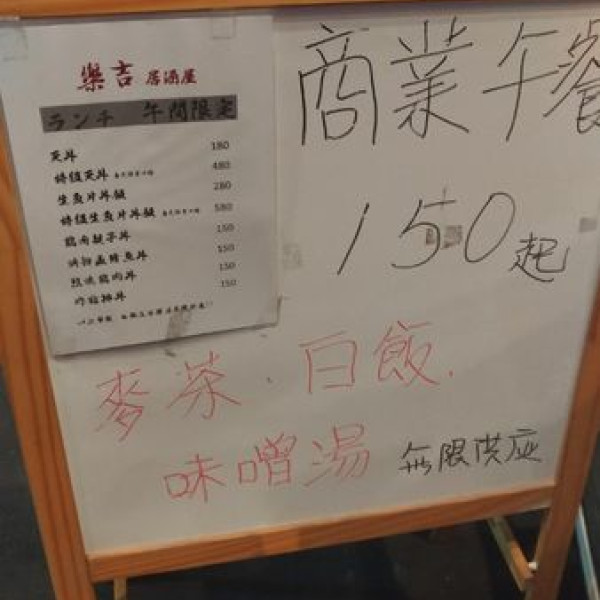 樂吉 居酒屋
ランチ 午間限定
天丼 180
特選天丼 480
生魚片丼飯 280
特選生魚片丼飯 580
雞肉親子丼 150
150
照燒雞肉丼 150
炸豬排丼 150
商業午餐
150起
麥茶、白飯.
味噌湯 無限供应